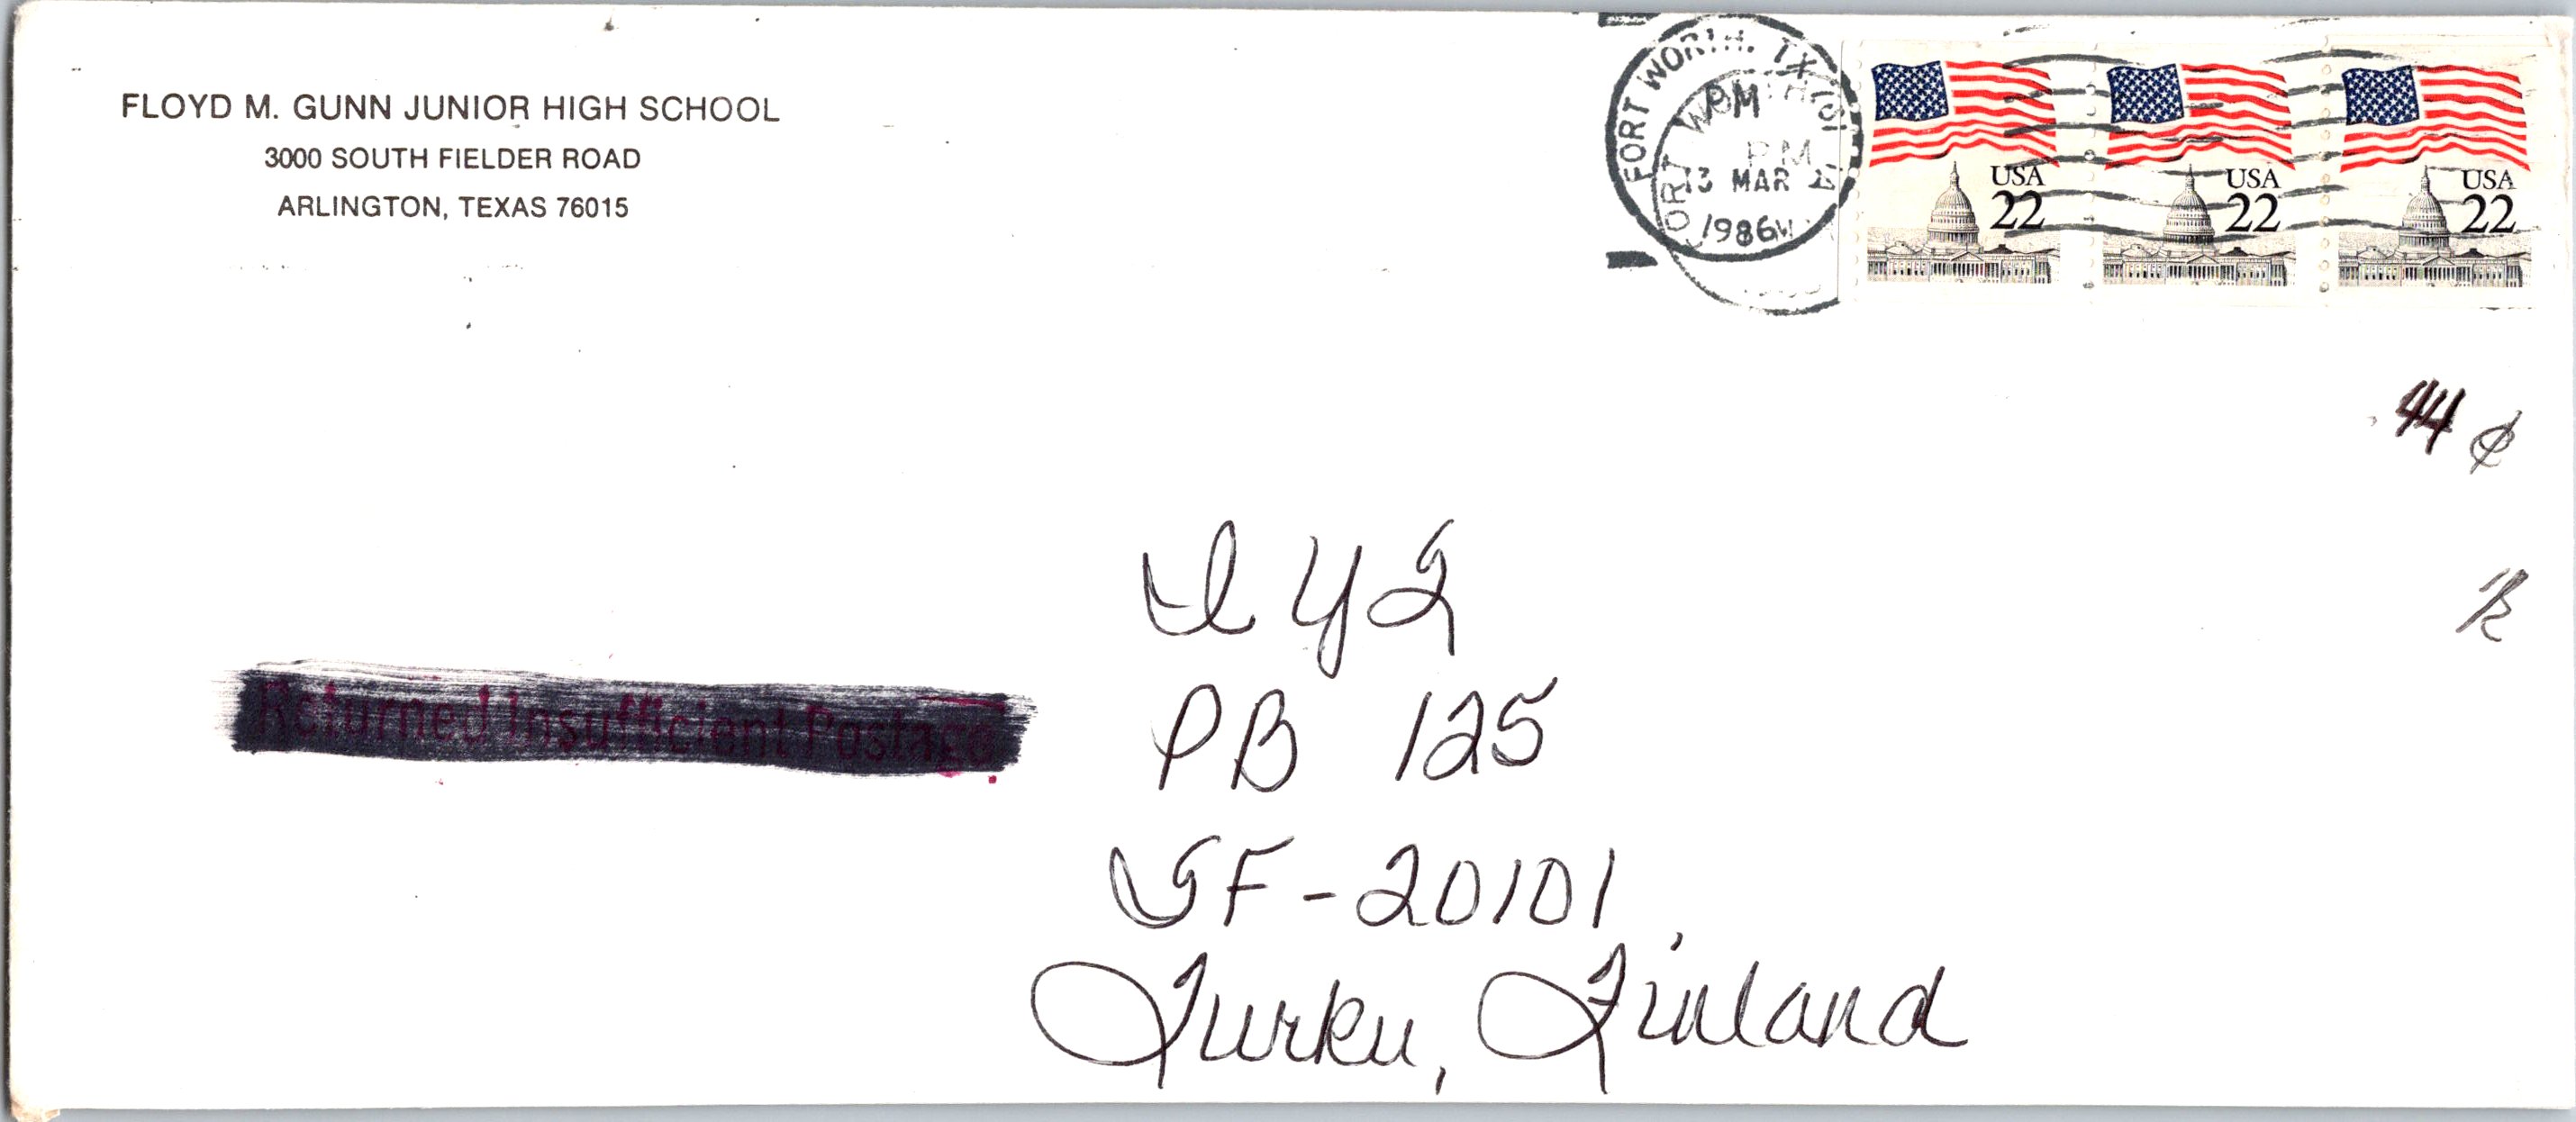 FLOYD M. GUNN JUNIOR HIGH SCHOOL
3000 SOUTH FIELDER ROAD
ARLINGTON, TEXAS 76015
FORT WORTH, TX 761
PM
ORT WORTH
PM
13 MAR
1986
USA
22
USA
22
USA
22
.44 ¢
IYS
PB 125
Returned Insufficient Postage
SF-20101
Turku, Finland